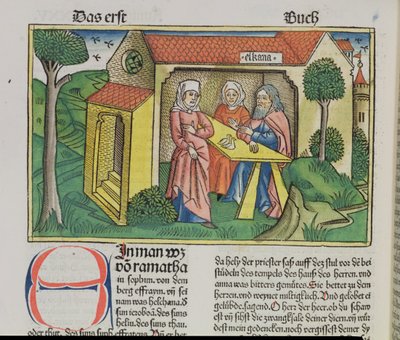 Das erst Buch
elkana
Ein man wz
vō ramatha
in sophim. von dem
berg effraym. Vn̄ sei
nam was helchana. d
sun ieroboā. des suns
heliu. des suns thau.
oder thut. des suns suph effratens. Vn̄ er het
da hely der priester saß auff dez stul vor dē bei
stüdeln des tempels des hauß des herren. vnd
anna was bitters gemütes. Sie bettet zu dem
herren. vnd weynet miltigklich. Vnd gelobet ei
gelübde. sagend. O herr der heer. ob du scham
est vn̄ sihst die zwangksale deiner diern. vn̄ wür
dest mein gedencken. noch vergissest deiner dy